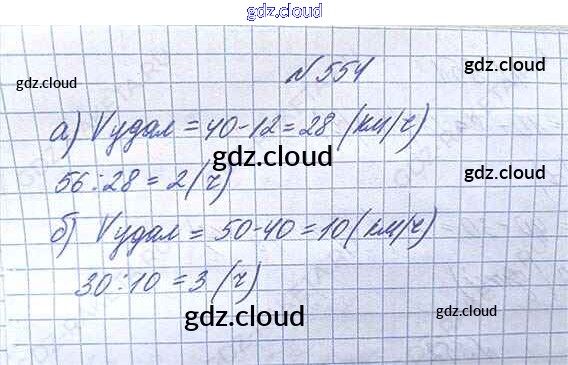 gdz.cloud
gdz.cloud gdz.cloud
№ 554
а) Vудал = 40-12 = 28 (км/ч)
gdz.cloud
56:28 = 2 (ч)
б) Vудал = 50-40 = 10 (км/ч)
30:10 = 3 (ч)
gdz.cloud gdz.cloud